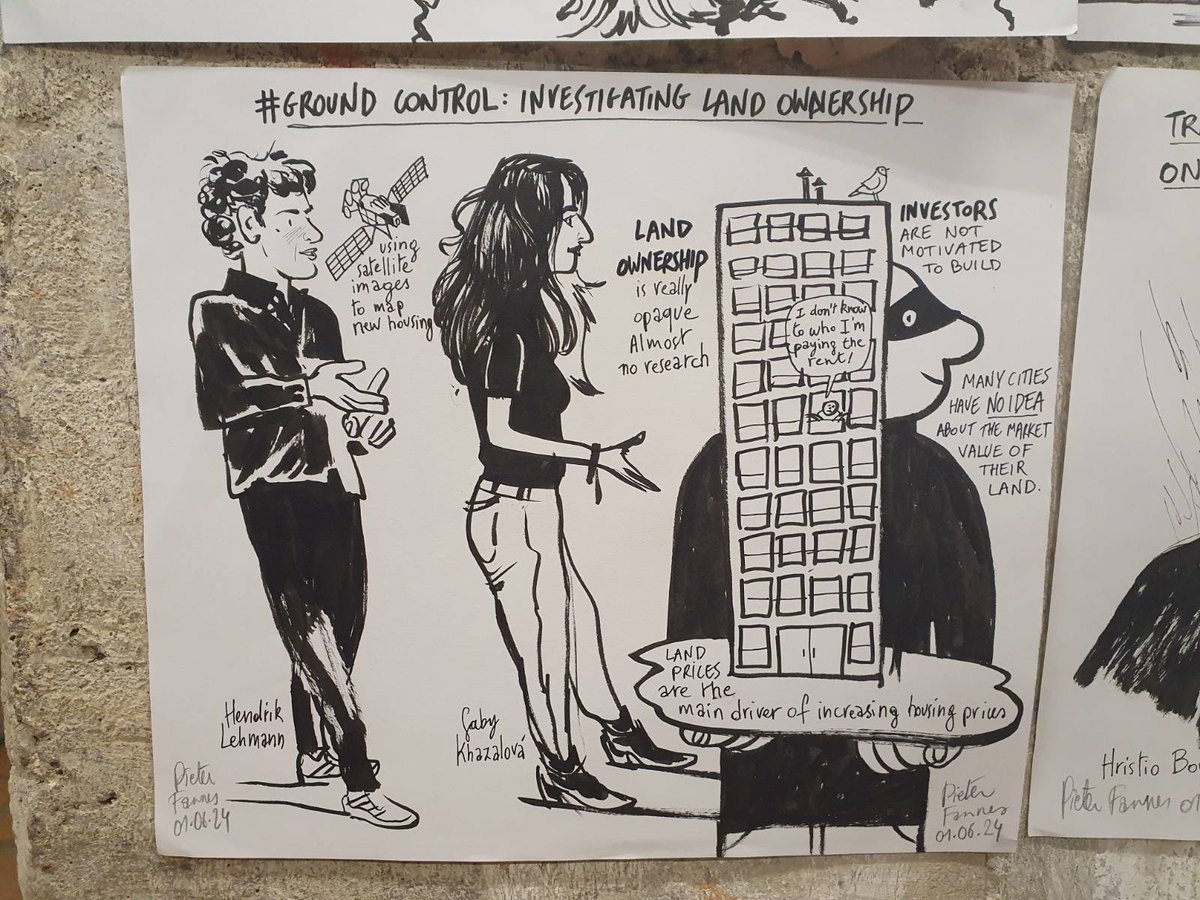 #GROUND CONTROL: INVESTIGATING LAND OWNERSHIP
using
satellite
images
to map
new housing
LAND
OWNERSHIP
is really
opaque
Almost
no research
INVESTORS
ARE NOT
MOTIVATED
TO BUILD
I don't know
to who I'm
paying the
rent!
MANY CITIES
HAVE NO IDEA
ABOUT THE MARKET
VALUE OF
THEIR
LAND.
LAND
PRICES
are the
main driver of increasing housing prices
Hendrik
Lehmann
Gaby
Khazalová
Pieter
Fannes
01.06.24
Pieter
Fannes
01.06.24
TR
ON
Hristio Bo
Pieter Fannes 01